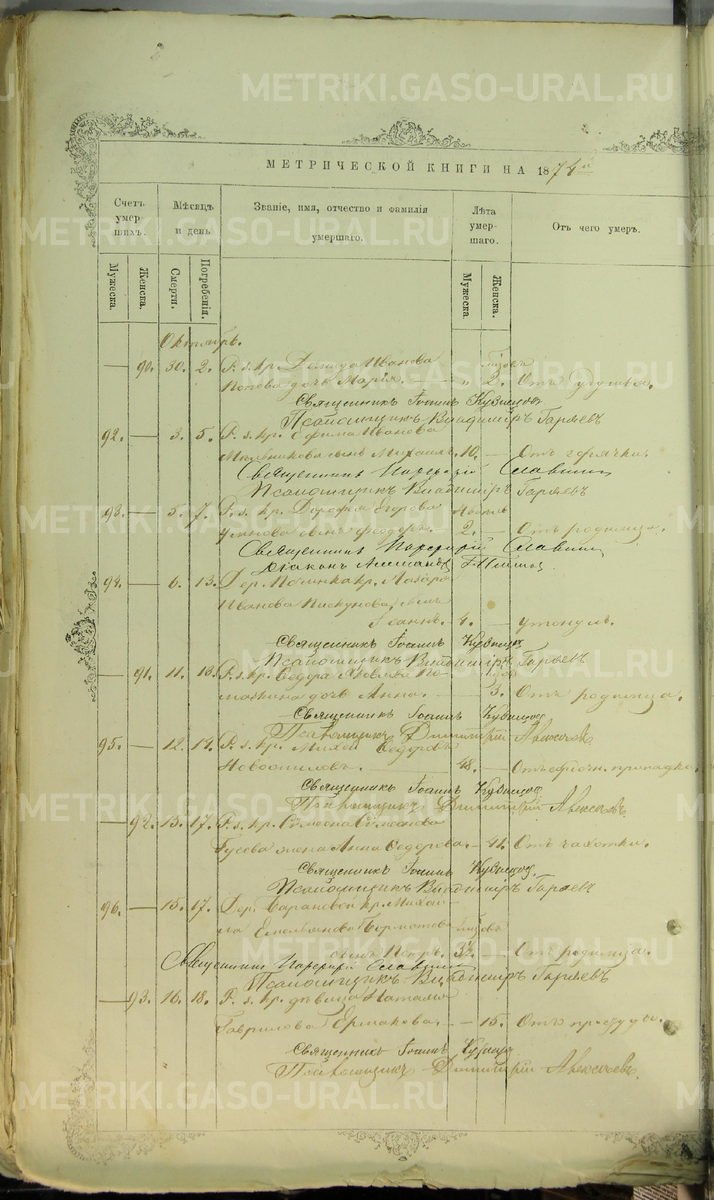 METRIKI.GASO-URAL.RU
МЕТРИЧЕСКОЙ КНИГИ НА 1874й
Счетъ умер шихъ.
Мѣсяцъ и день
Званіе, имя, отчество и фамилія умершаго.
Лѣта умершаго.
Отъ чего умеръ.
Мужеска.
Женска.
Смерти.
Погребенія.
Мужеска.
Женска.
Октябрь.
— 90. 30. 2. Р. з. кр. Иванова
Попова дочь Марія. — " 2. Отъ удушья.
Священникъ Іоаннъ Кузнецовъ
Псаломщикъ Владиміръ Гаряевъ
92. — 3. 5. Р. з. кр. Ефима Иванова
Мельникова сынъ Михаилъ. 10. — Отъ горячки.
Священникъ Славнинъ
Псаломщикъ Владиміръ Гаряевъ
93. — 5. 7. Р. з. кр. Дорофея Егорова
сынъ Феодоръ. 2. — Отъ родимца.
Священникъ Славнинъ
Діаконъ Александръ
94. — 6. 13. Дер. кр. Лазаря
Иванова Пискунова сынъ
Іоаннъ. 4. — утонулъ.
Священникъ Іоаннъ Кузнецовъ
Псаломщикъ Владиміръ Гаряевъ
— 91. 11. 13. Р. з. кр. Ѳедора Яковлева
дочь Анна. — 3. Отъ родимца.
Священникъ Іоаннъ Кузнецовъ
Псаломщикъ Димитрій Алексѣевъ
95. — 12. 14. Р. з. кр. Михей Ѳедоровъ
Новоселовъ. — 48. — Отъ припадка.
Священникъ Іоаннъ Кузнецовъ
Псаломщикъ Димитрій Алексѣевъ
— 92. 15. 17. Р. з. кр. Симеона
Гусева жена Анна Ѳедорова. — 41. Отъ чахотки.
Священникъ Іоаннъ Кузнецовъ
Псаломщикъ Владиміръ Гаряевъ
96. — 15. 17. Дер. Барановой кр. Михаи-
ла Емельянова
сынъ Петръ. — Отъ родимца.
Священникъ Славнинъ
Псаломщикъ Владиміръ Гаряевъ
— 93. 16. 18. Р. з. кр. дѣвица Наталья
Гаврилова Ермакова. — — 15. Отъ простуды.
Священникъ Іоаннъ Кузнецовъ
Псаломщикъ Димитрій Алексѣевъ